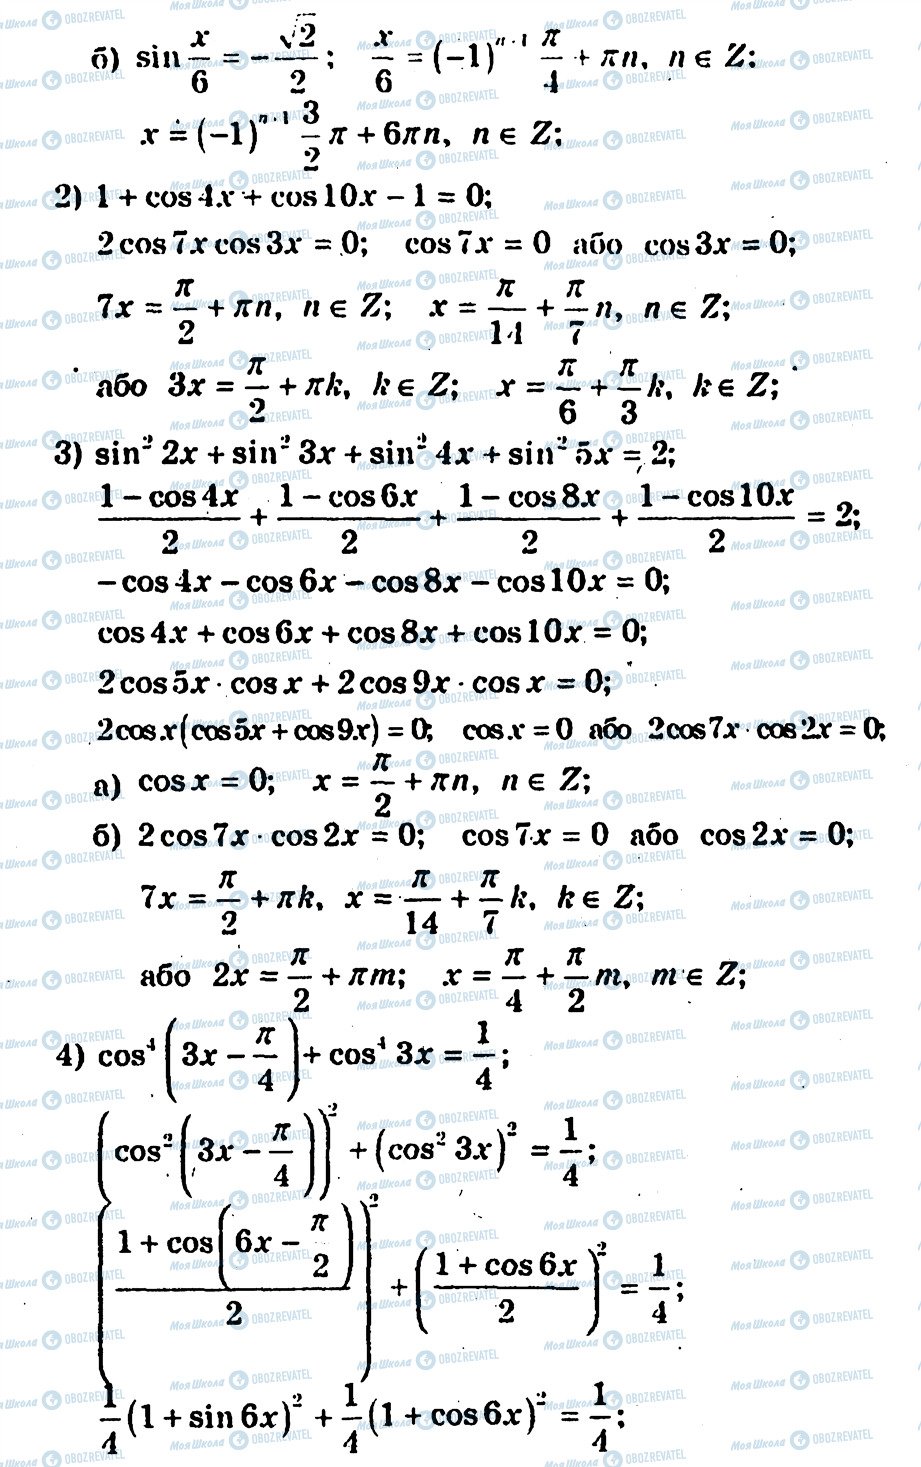 б) sin x/6 = −√2/2; x/6 = (−1)ⁿ⁺¹ π/4 + πn, n ∈ Z;
x = (−1)ⁿ⁺¹ 3/2 π + 6πn, n ∈ Z;
2) 1 + cos 4x + cos 10x − 1 = 0;
2 cos 7x cos 3x = 0; cos 7x = 0 або cos 3x = 0;
7x = π/2 + πn, n ∈ Z; x = π/14 + π/7 n, n ∈ Z;
або 3x = π/2 + πk, k ∈ Z; x = π/6 + π/3 k, k ∈ Z;
3) sin² 2x + sin² 3x + sin² 4x + sin² 5x = 2;
(1 − cos 4x)/2 + (1 − cos 6x)/2 + (1 − cos 8x)/2 + (1 − cos 10x)/2 = 2;
− cos 4x − cos 6x − cos 8x − cos 10x = 0;
cos 4x + cos 6x + cos 8x + cos 10x = 0;
2 cos 5x · cos x + 2 cos 9x · cos x = 0;
2 cos x(cos 5x + cos 9x) = 0; cos x = 0 або 2 cos 7x · cos 2x = 0;
а) cos x = 0; x = π/2 + πn, n ∈ Z;
б) 2 cos 7x · cos 2x = 0; cos 7x = 0 або cos 2x = 0;
7x = π/2 + πk, x = π/14 + π/7 k, k ∈ Z;
або 2x = π/2 + πm; x = π/4 + π/2 m, m ∈ Z;
4) cos⁴(3x − π/4) + cos⁴ 3x = 1/4;
(cos²(3x − π/4))² + (cos² 3x)² = 1/4;
((1 + cos(6x − π/2))/2)² + ((1 + cos 6x)/2)² = 1/4;
1/4 (1 + sin 6x)² + 1/4 (1 + cos 6x)² = 1/4;